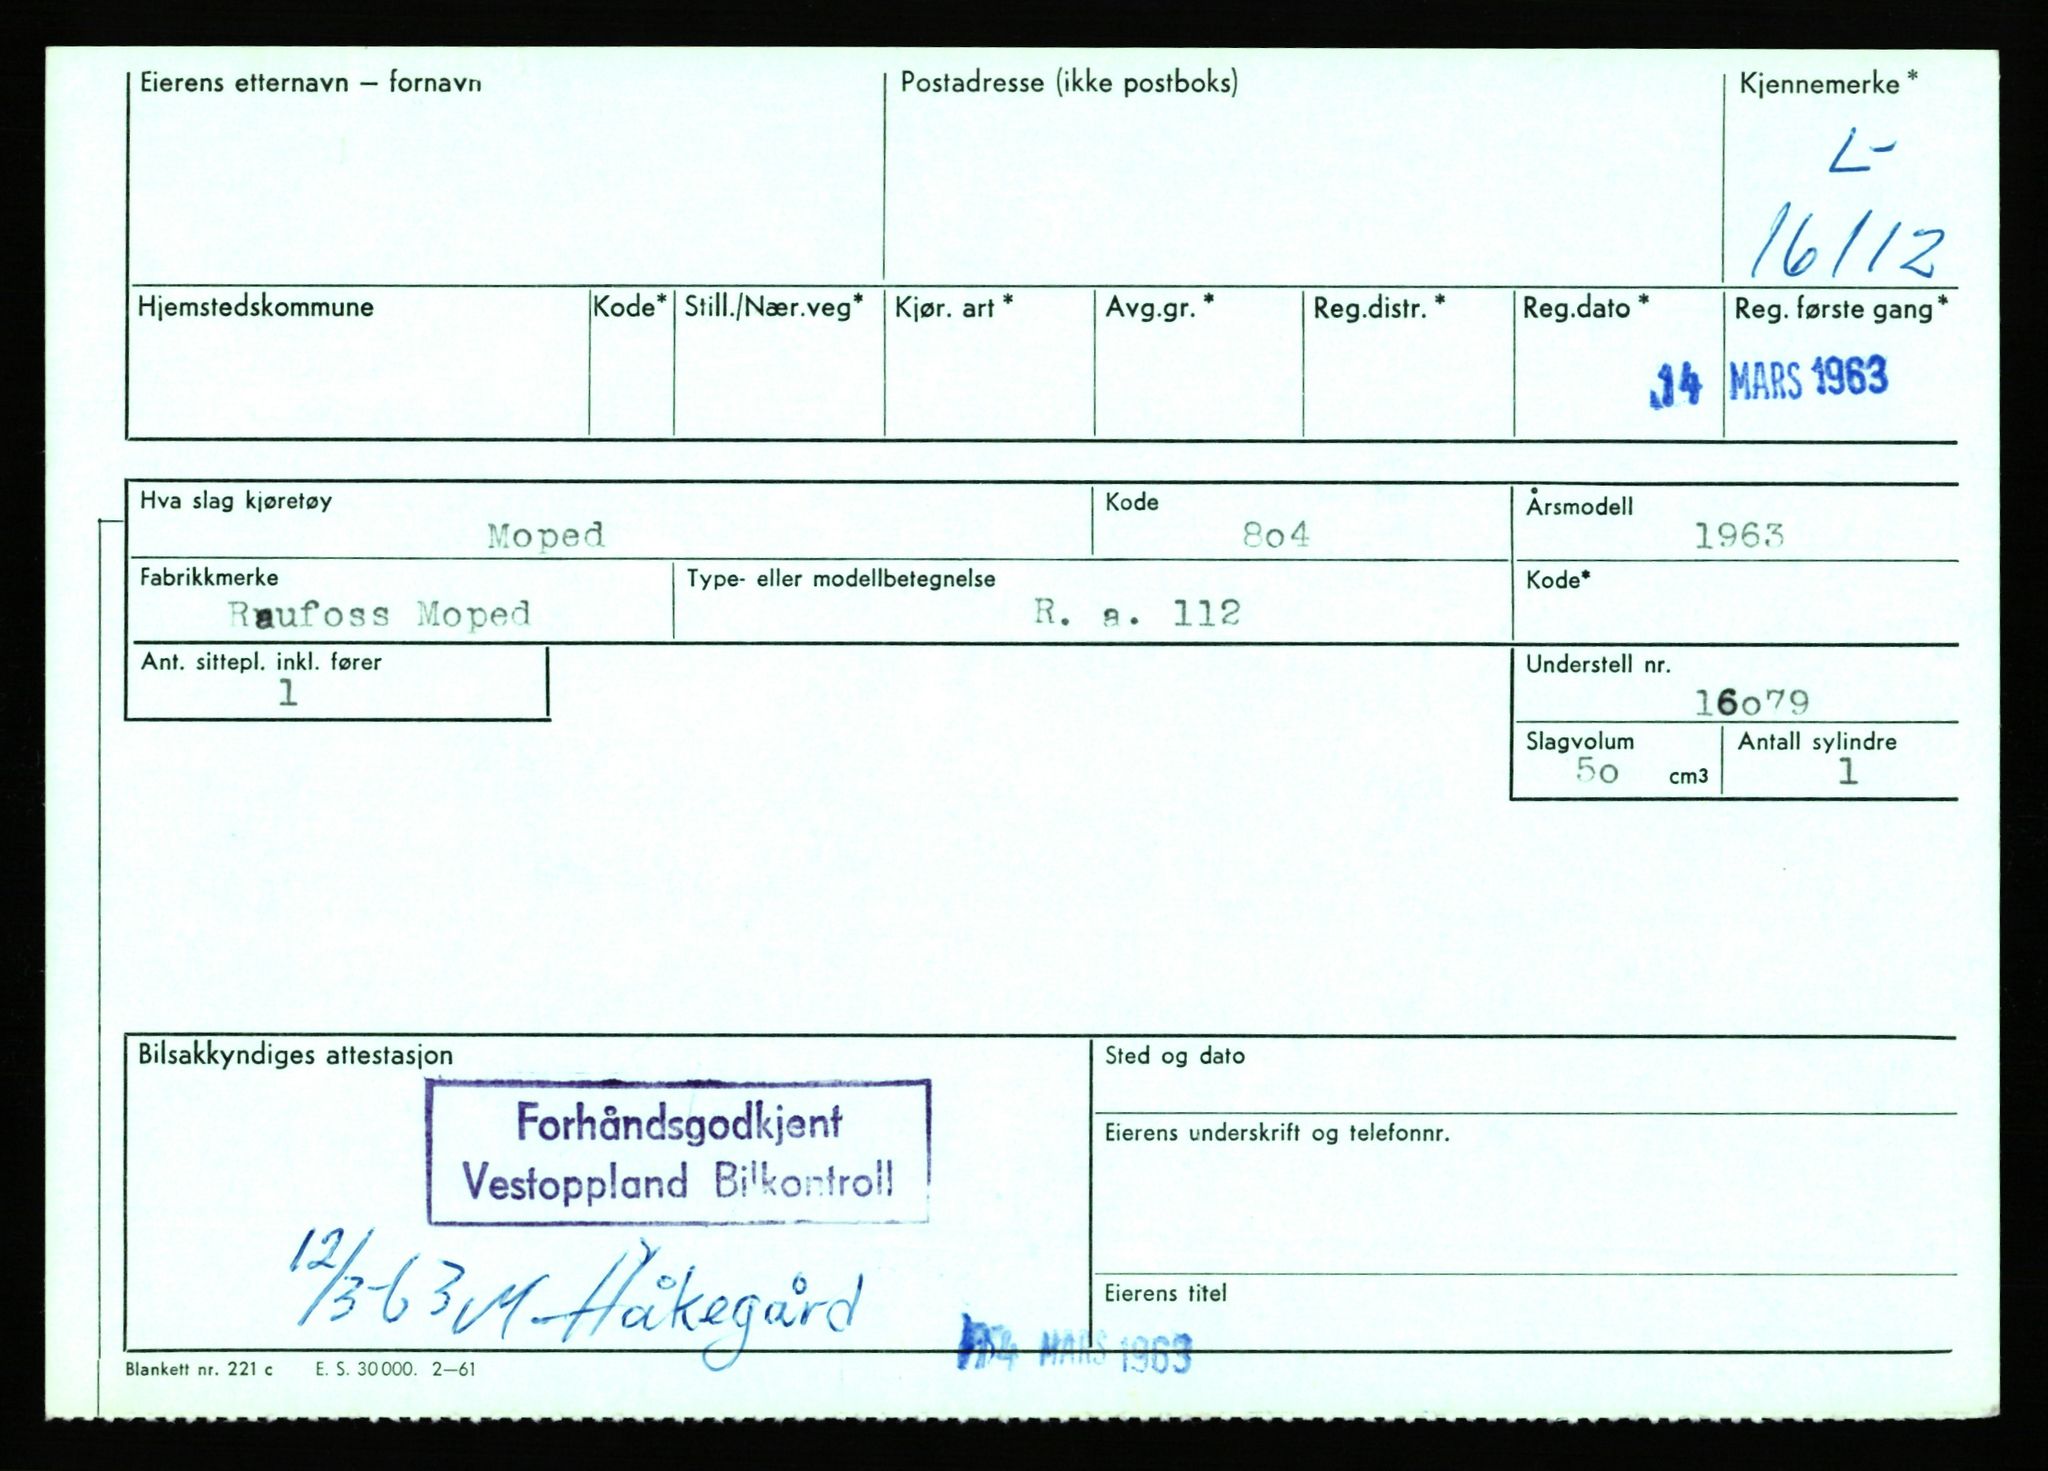 Eierens etternavn – fornavn
Postadresse (ikke postboks)
Kjennemerke*
L-
16112
Hjemstedskommune
Kode*
Still./Nær.veg*
Kjør. art*
Avg.gr.*
Reg.distr.*
Reg.dato*
Reg. første gang*
14 MARS 1963
Hva slag kjøretøy
Moped
Kode
8o4
Årsmodell
1963
Fabrikkmerke
Raufoss Moped
Type- eller modellbetegnelse
R. a. 112
Kode*
Ant. sittepl. inkl. fører
1
Understell nr.
16o79
Slagvolum
5o cm3
Antall sylindre
1
Bilsakkyndiges attestasjon
Forhåndsgodkjent
Vestoppland Bilkontroll
12/3-63 M. Håkegård
Sted og dato
Eierens underskrift og telefonnr.
Eierens titel
MARS 1963
Blankett nr. 221 c E. S. 30 000. 2–61